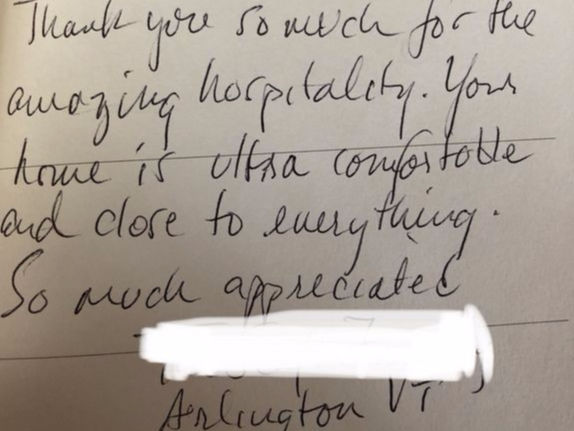 Thank you so much for the
amazing hospitality. Your
home is ultra comfortable
and close to everything.
So much appreciated
Arlington VT